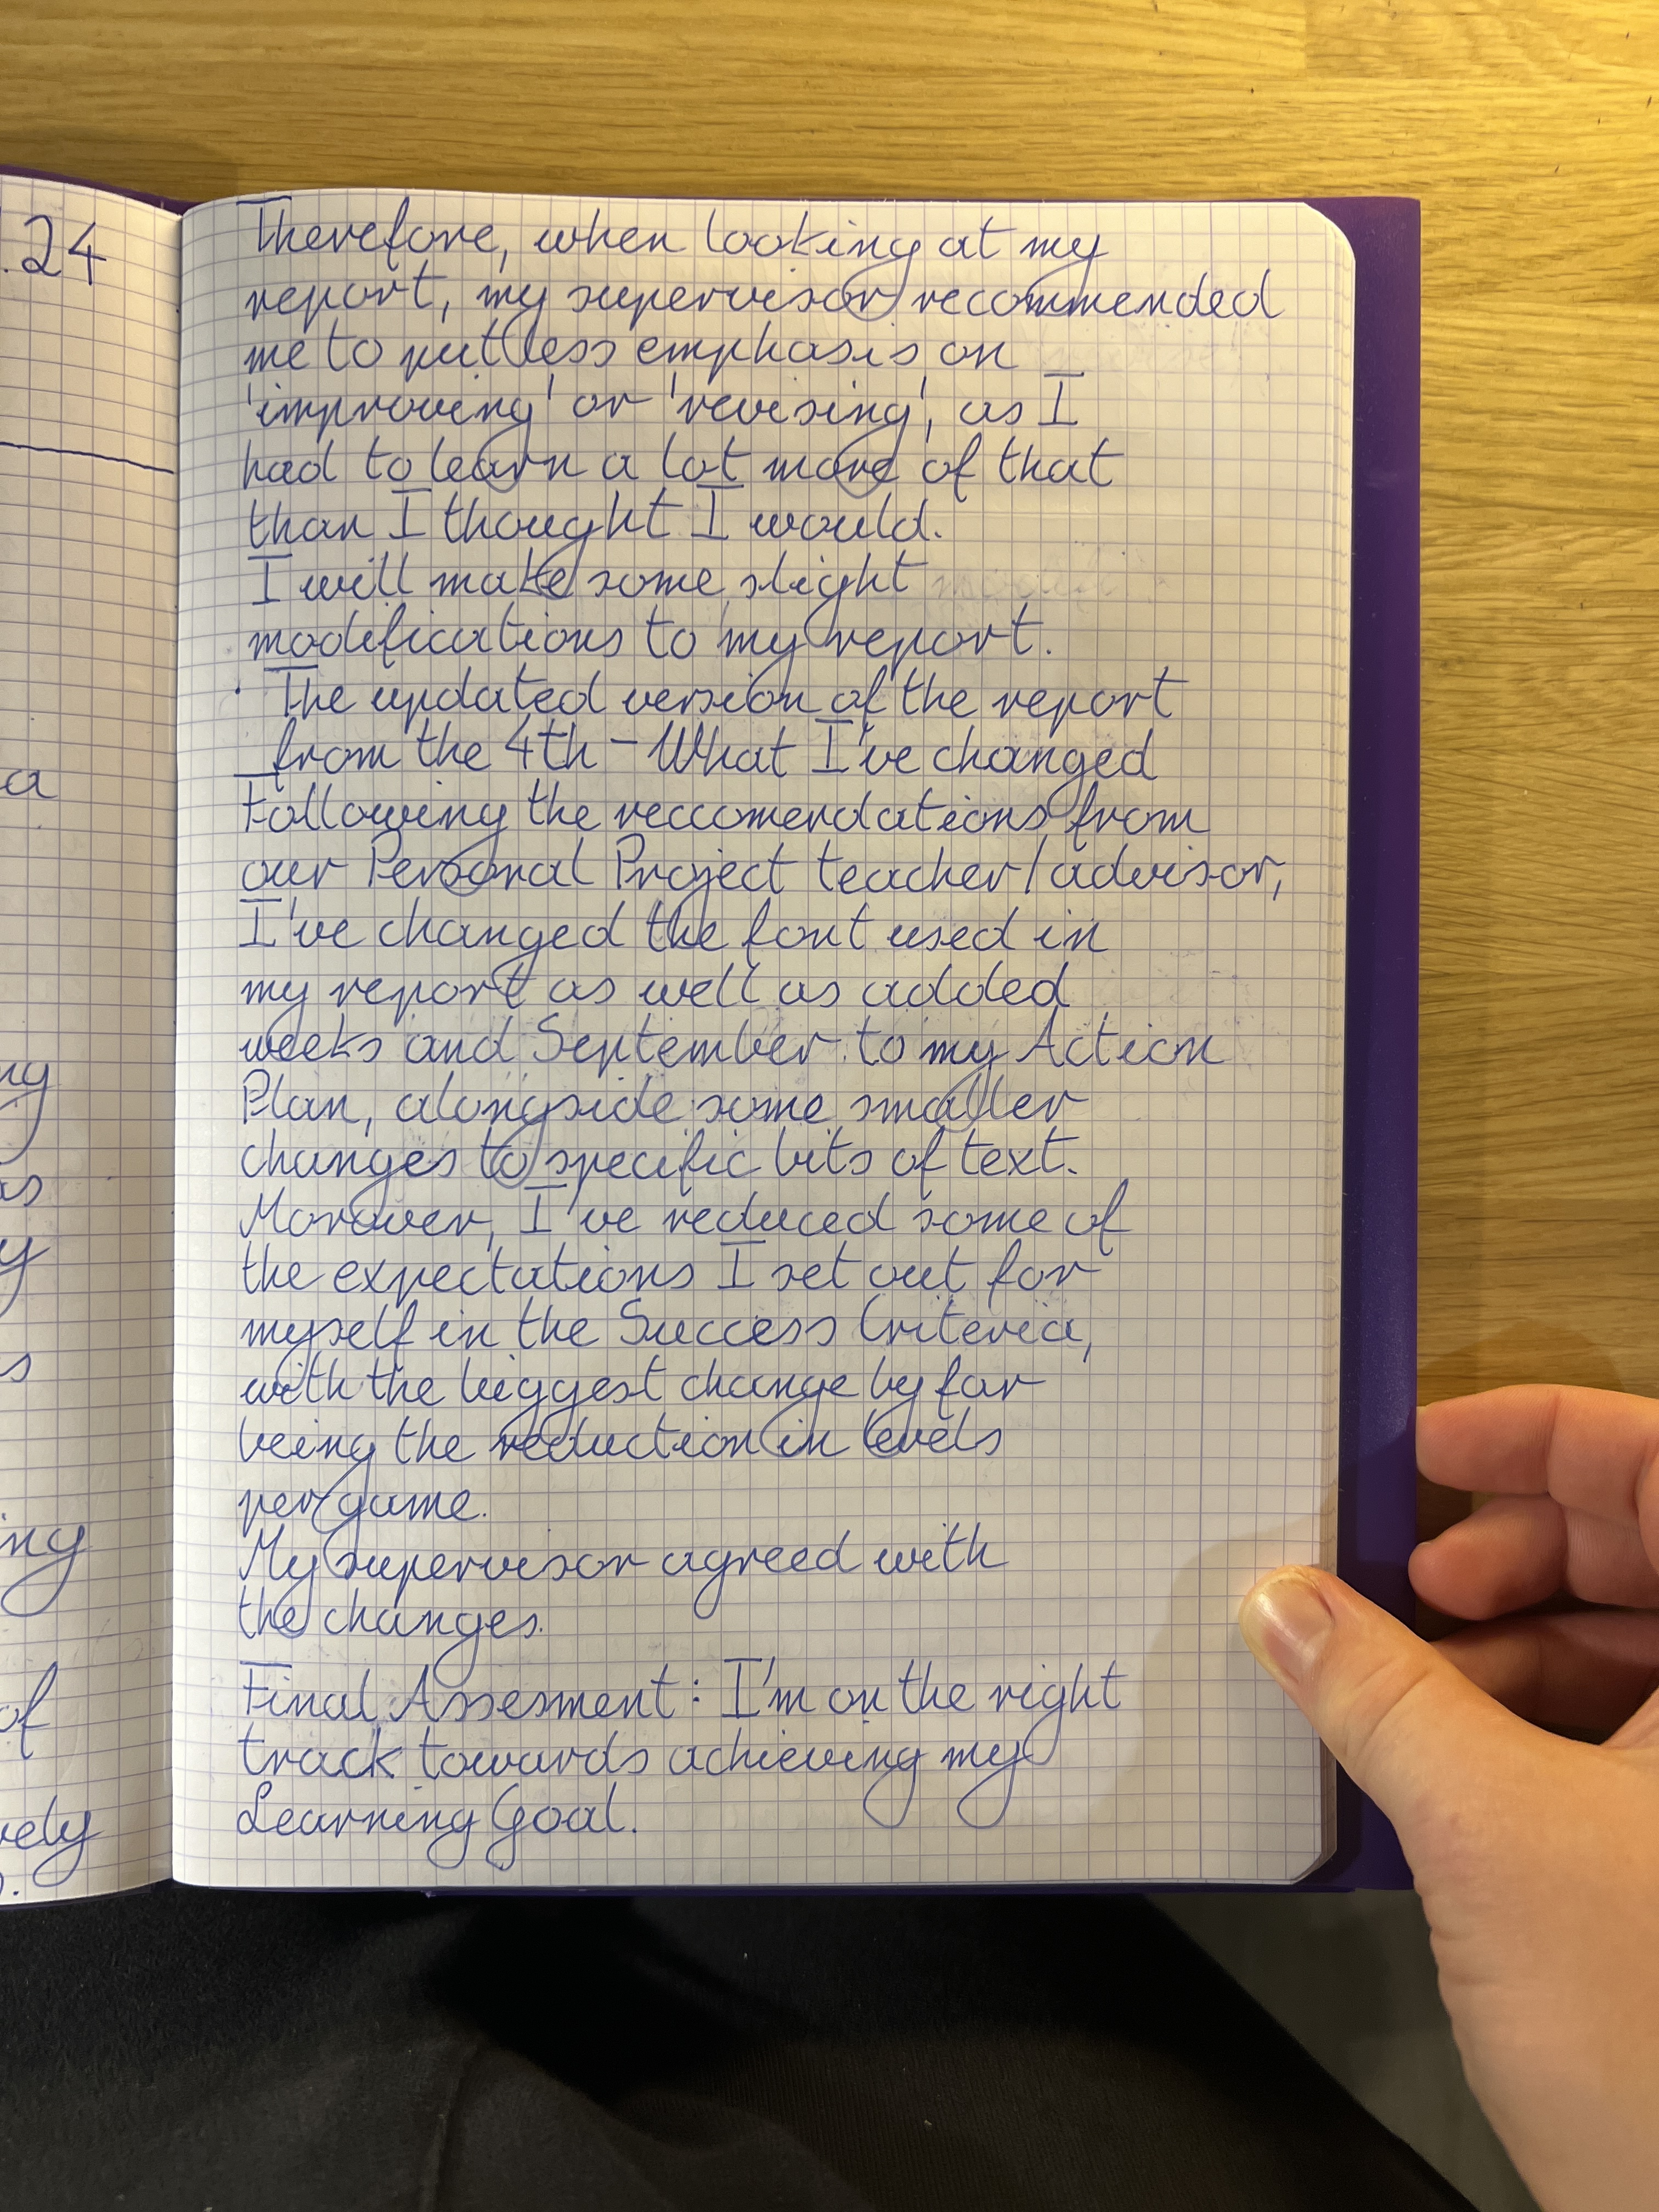 .24
a
ng
as
y
s
ing
of
vely
Therefore, when looking at my
report, my supervisor recommended
me to put less emphasis on
'improving' or 'revising', as I
had to learn a lot more of that
than I thought I would.
I will make some slight
modifications to my report.
· The updated version of the report
from the 4th – What I've changed
Following the reccomendations from
our Personal Project teacher/advisor,
I've changed the font used in
my report as well as added
weeks and September to my Action
Plan, alongside some smaller
changes to specific bits of text.
Morover, I've reduced some of
the expectations I set out for
myself in the Success Criteria,
with the biggest change by far
being the reduction in levels
per game.
My supervisor agreed with
the changes.
Final Assesment: I'm on the right
track towards achieving my
Learning Goal.